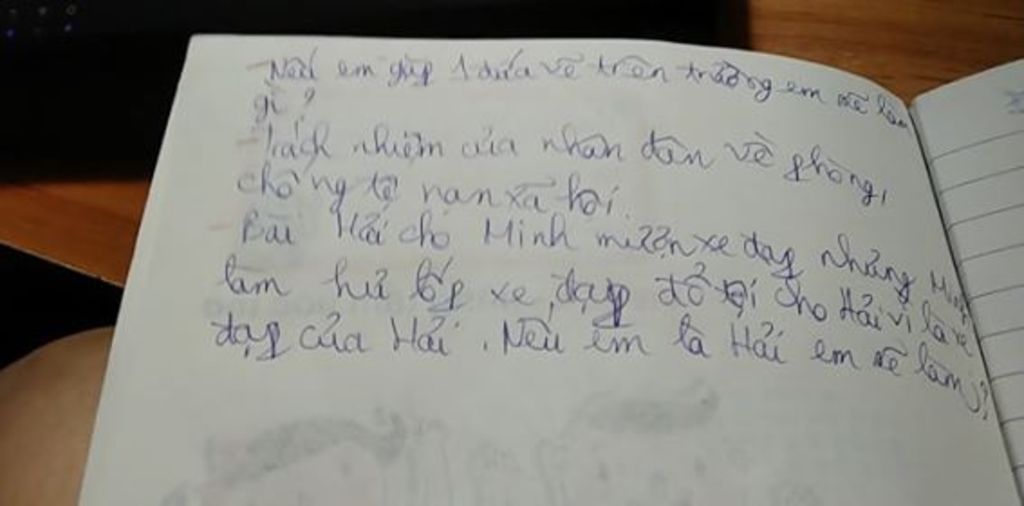 - Nếu em gặp 1 đứa vẽ trên trường em sẽ làm
gì?
- Trách nhiệm của nhân dân về phòng,
chống tệ nạn xã hội.
- Bài Hải cho Minh mượn xe đạp nhưng Minh
làm hư lốp xe, đạp đổ tội cho Hải vì là xe
đạp của Hải. Nếu em là Hải em sẽ làm gì?